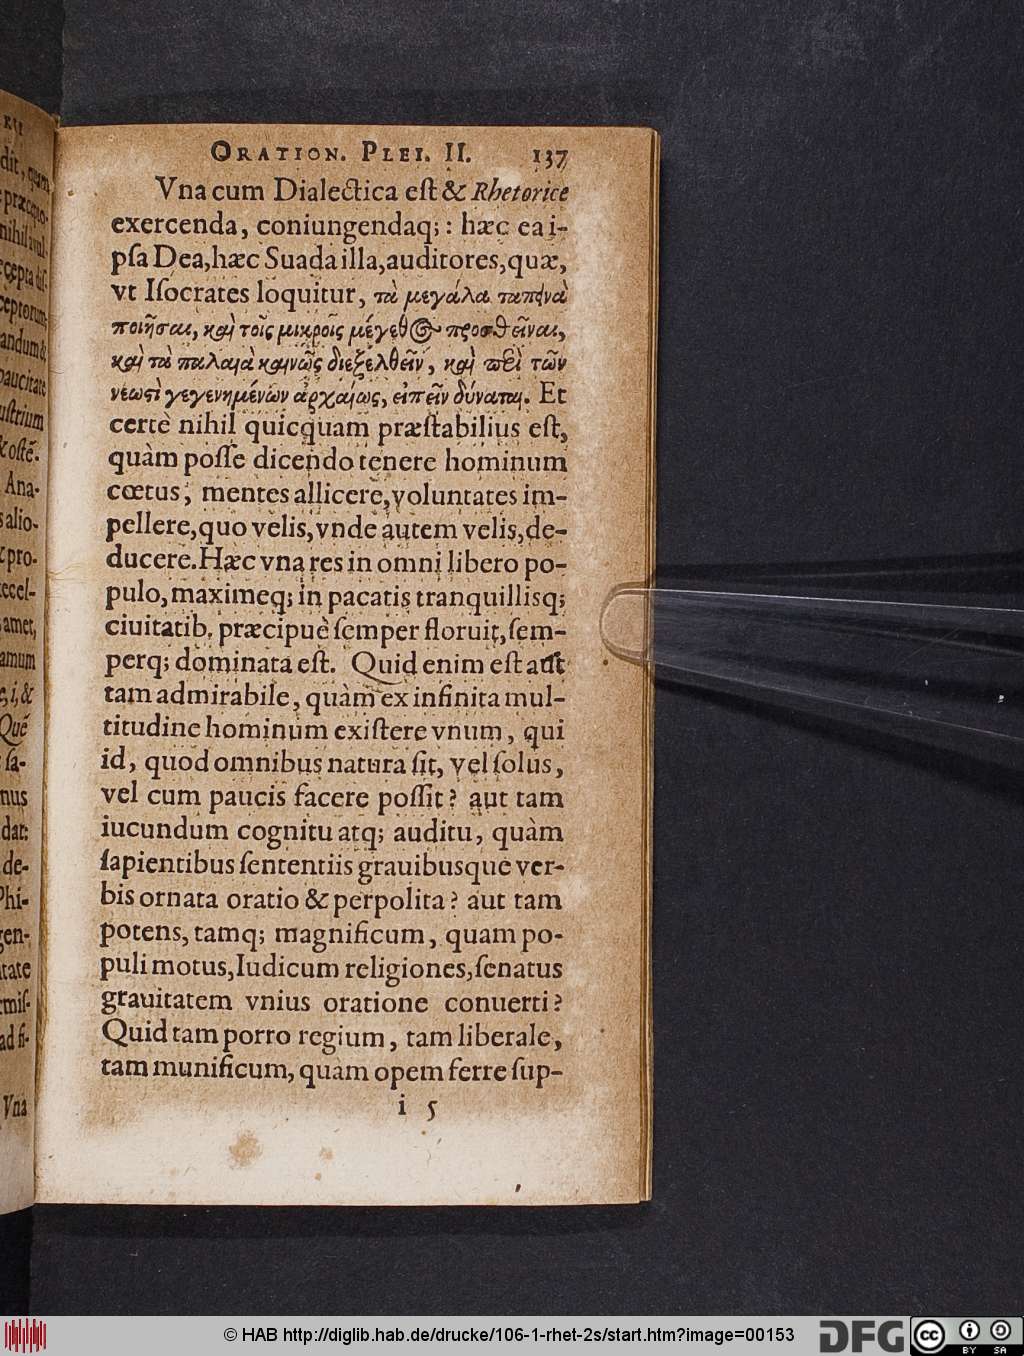 ORATION. PLEI. II. 137
Vna cum Dialectica eſt & Rhetorice
exercenda, coniungendaq;: hæc ea i-
pſa Dea, hæc Suada illa, auditores, quæ,
vt Iſocrates loquitur, τὰ μεγάλα ταπεινὰ
ποιῆσαι, καὶ τοῖς μικροῖς μέγεθος προσθεῖναι,
καὶ τὰ παλαιὰ καινῶς διεξελθεῖν, καὶ περὶ τῶν
νεωστὶ γεγενημένων ἀρχαίως, εἰπεῖν δύναται. Et
certè nihil quicquam præſtabilius eſt,
quàm poſſe dicendo tenere hominum
cœtus, mentes allicere, voluntates im-
pellere, quo velis, vnde autem velis, de-
ducere. Hæc vna res in omni libero po-
pulo, maximeq; in pacatis tranquilliſq;
ciuitatib. præcipuè ſemper floruit, ſem-
perq; dominata eſt. Quid enim eſt aut
tam admirabile, quàm ex infinita mul-
titudine hominum exiſtere vnum, qui
id, quod omnibus natura ſit, vel ſolus,
vel cum paucis facere poſſit? aut tam
iucundum cognitu atq; auditu, quàm
ſapientibus ſententiis grauibusque ver-
bis ornata oratio & perpolita? aut tam
potens, tamq; magnificum, quam po-
puli motus, Iudicum religiones, ſenatus
grauitatem vnius oratione conuerti?
Quid tam porro regium, tam liberale,
tam munificum, quàm opem ferre ſup-
i 5
dit, quam
nihil
ceptorum,
andum &
paucitate
& oſtē-
Ana-
s alio-
& pro-
ecel-
amet,
amum
e, i, &
Quē
ſa-
nus
dat:
de-
Phi-
gen-
itate
emiſ-
ad fi-
Vna
© HAB http://diglib.hab.de/drucke/106-1-rhet-2s/start.htm?image=00153
DFG
cc BY SA